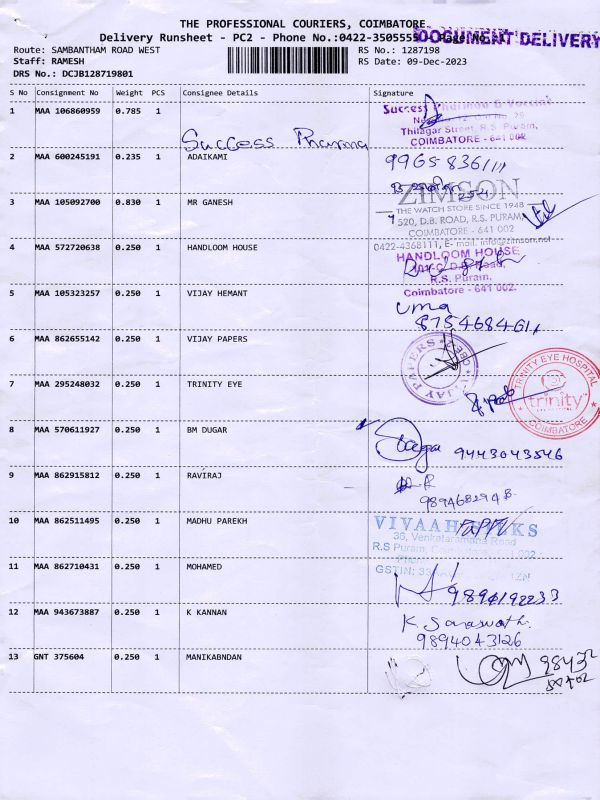 THE PROFESSIONAL COURIERS, COIMBATORE
DOCUMENT DELIVERY
Delivery Runsheet - PC2 - Phone No.:0422-3505555
Route: SAMBANTHAM ROAD WEST
RS No.: 1287198
Staff: RAMESH
RS Date: 09-Dec-2023
DRS No.: DCJB128719801
S No Consignment No Weight PCS Consignee Details Signature
1 MAA 106860959 0.785 1
Success Pharma
Success
Thilagar Street, R.S. Puram,
COIMBATORE - 641 002
2 MAA 600245191 0.235 1 ADAIKAMI
3 MAA 105092700 0.830 1 MR GANESH
ZIMSON
THE WATCH STORE SINCE 1948
520, D.B. ROAD, R.S. PURAM,
COIMBATORE - 641 002
0422-4368111, E- mail. info@zimson.net
4 MAA 572720638 0.250 1 HANDLOOM HOUSE
HANDLOOM HOUSE
R.S. Puram,
Coimbatore - 641 002.
5 MAA 105323257 0.250 1 VIJAY HEMANT
uma
6 MAA 862655142 0.250 1 VIJAY PAPERS
VIJAY PAPERS CBE
7 MAA 295248032 0.250 1 TRINITY EYE
TRINITY EYE HOSPITAL
trinity
COIMBATORE
8 MAA 570611927 0.250 1 BM DUGAR
9443043546
9 MAA 862915812 0.250 1 RAVIRAJ
10 MAA 862511495 0.250 1 MADHU PAREKH
36, Venkataramana Road
R.S Puram,
GSTIN:
11 MAA 862710431 0.250 1 MOHAMED
12 MAA 943673887 0.250 1 K KANNAN
9894043126
13 GNT 375604 0.250 1 MANIKABNDAN